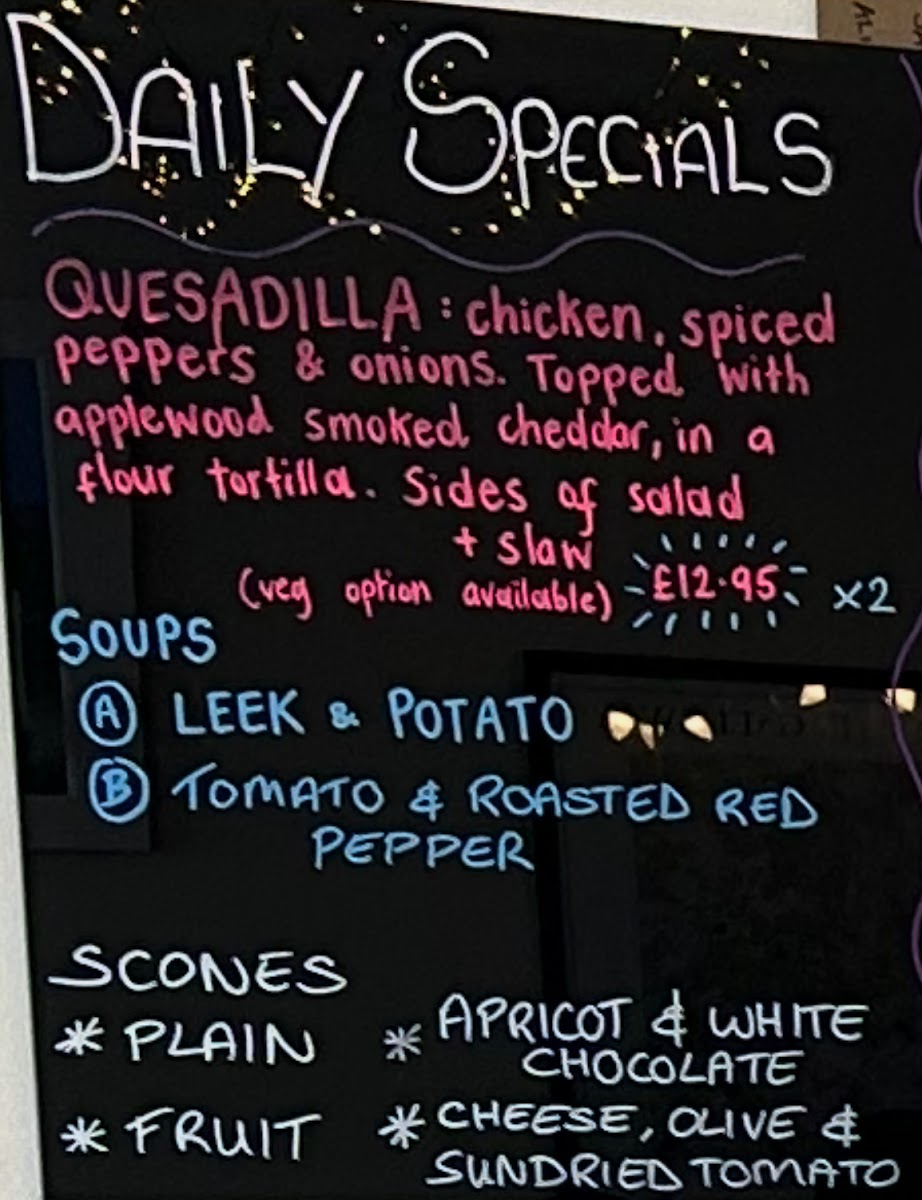 DAILY SPECIALS
QUESADILLA : chicken, spiced
peppers & onions. Topped with
applewood smoked cheddar, in a
flour tortilla. Sides of salad
+ slaw
(veg option available) £12.95 x2
SOUPS
A LEEK & POTATO
B TOMATO & ROASTED RED
PEPPER
SCONES
* PLAIN
* APRICOT & WHITE
CHOCOLATE
* FRUIT
* CHEESE, OLIVE &
SUNDRIED TOMATO